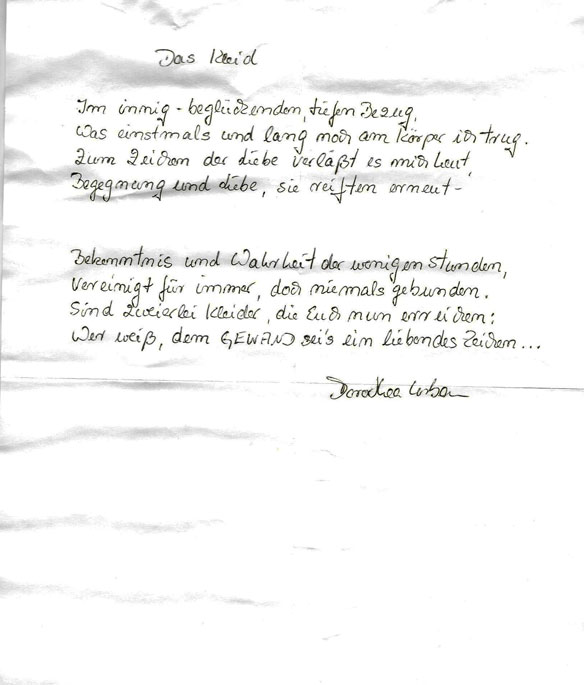 Das Kleid
Im innig-beglückenden, tiefen Bezug,
Was einstmals und lang noch am Körper ich trug.
Zum Zeichen der Liebe verläßt es mich heut,
Begegnung und Liebe, sie reiften erneut-
Bekenntnis und Wahrheit der wenigen Stunden,
Vereinigt für immer, doch niemals gebunden.
Sind zweierlei Kleider, die Euch nun erreichen:
Wer weiß, dem GEWAND sei's ein liebendes Zeichen...
Dorothea